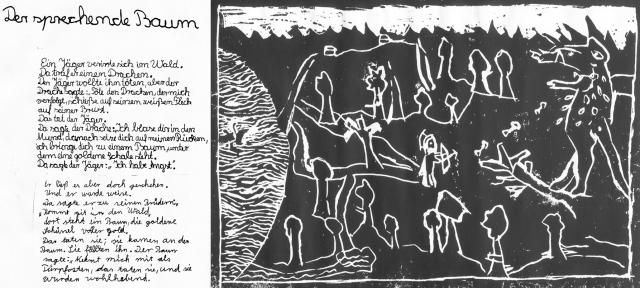 Der sprechende Baum
Ein Jäger verirrte sich im Wald.
Da traf er einen Drachen.
Der Jäger wollte ihn töten, aber der
Drache sagte: „Töte den Drachen, der mich
verfolgt, schieße auf seinen weißen Fleck
auf seiner Brust.
Das tat der Jäger.
Da sagte der Drache: „Ich blase dir in den
Mund, danach setze dich auf meinen Rücken,
ich bringe dich zu einem Baum, unter
dem eine goldene Schale steht.
Da sagte der Jäger: „Ich habe Angst."
Er ließ es aber doch geschehen.
Und er wurde weise.
Da sagte er zu seinen Brüdern,
„Kommt mit in den Wald,
dort steht ein Baum, die goldene
Schüssel voller Gold.
Das taten sie; sie kamen an den
Baum. Sie fällten ihn. Der Baum
sagte: „Nehmt mich mit als
Türpfosten, das taten sie, und sie
wurden wohlhabend.